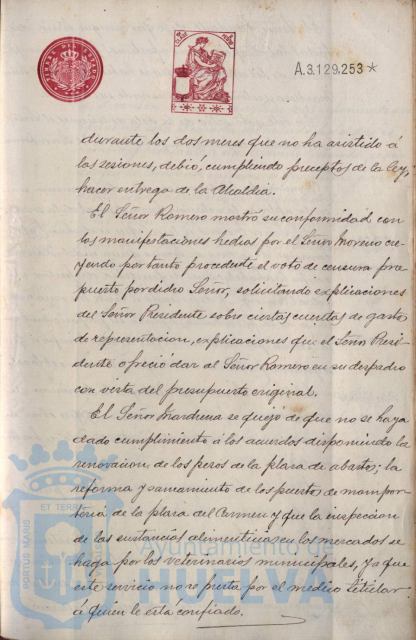 TIMBRE DEL ESTADO
A.3.129.253*
durante los dos meses que no ha asistido á
las sesiones, debió, cumpliendo preceptos de la ley,
hacer entrega de la Alcaldia.
El Señor Romero mostró su conformidad con
las manifestaciones hechas por el Señor Moreno cre-
yendo por tanto procedente el voto de censura pro-
puesto por dicho Señor, solicitando explicaciones
del Señor Presidente sobre ciertas cuentas de gastos
de representacion, explicaciones que el Señor Presi-
dente ofreció dar al Señor Romero en su despacho
con vista del presupuesto original.
El Señor Marchena se quejó de que no se haya
dado cumplimiento á los acuerdos disponiendo la
renovacion de los pesos de la plaza de abastos; la
reforma y saneamiento de los puestos de mampos-
tería de la plaza del Carmen y que la inspeccion
de las sustancias alimenticias en los mercados se
haga por los veterinarios municipales, ya que
este servicio no se presta por el medico titular
á quien le está confiado.
PORTUS MARIS ET TERRAE
Ayuntamiento de
HUELVA